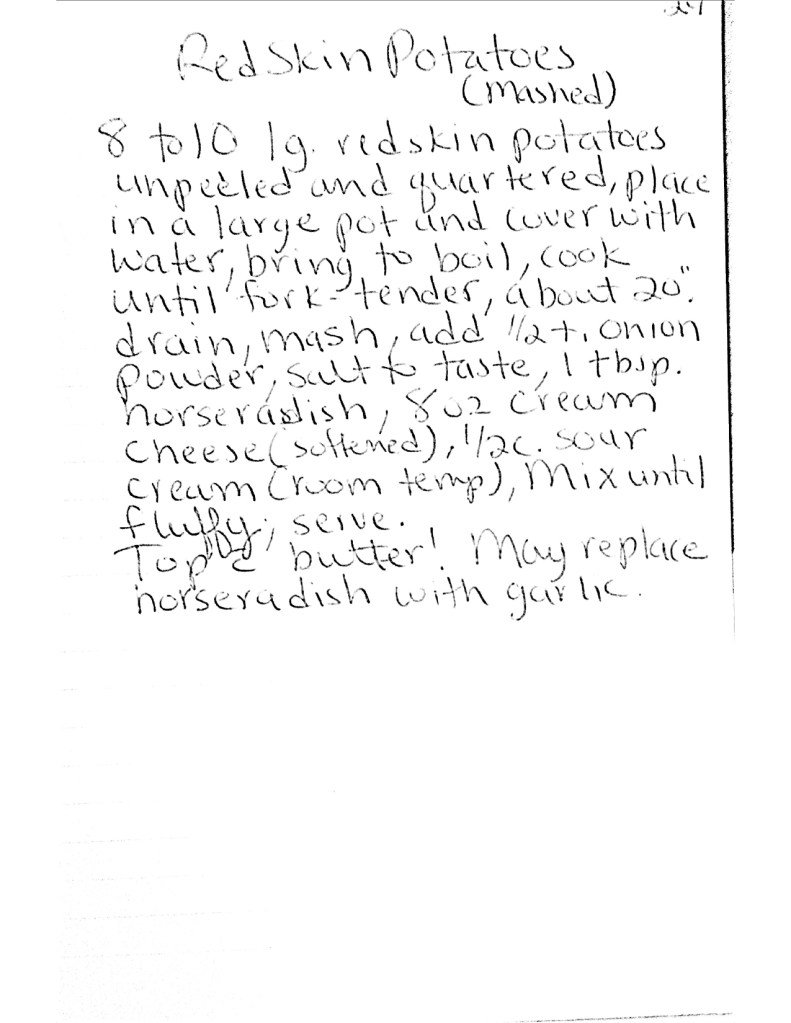 Redskin Potatoes
(Mashed)
8 to 10 lg. redskin potatoes
unpeeled and quartered, place
in a large pot and cover with
water, bring to boil, cook
until fork-tender, about 20".
drain, mash, add 1/2 t. onion
powder, salt to taste, 1 tbsp.
horseradish, 8 oz cream
cheese (softened), 1/2 c. sour
cream (room temp), Mix until
fluffy, serve.
Top c̄ butter! May replace
horseradish with garlic.